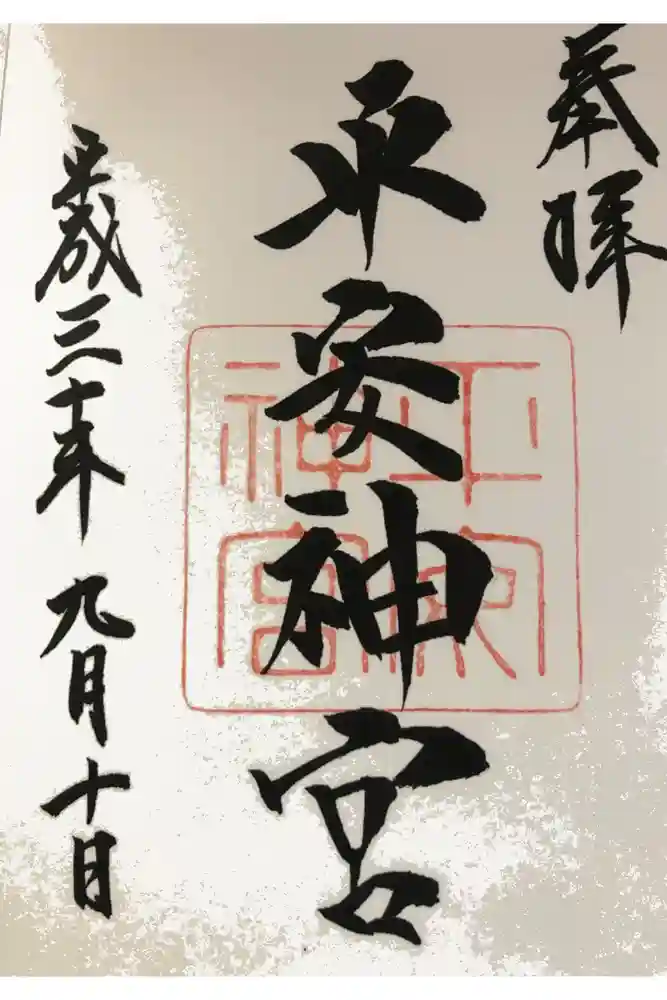 奉拝
平安神宮
平安
神宮
平成三十年 九月十日